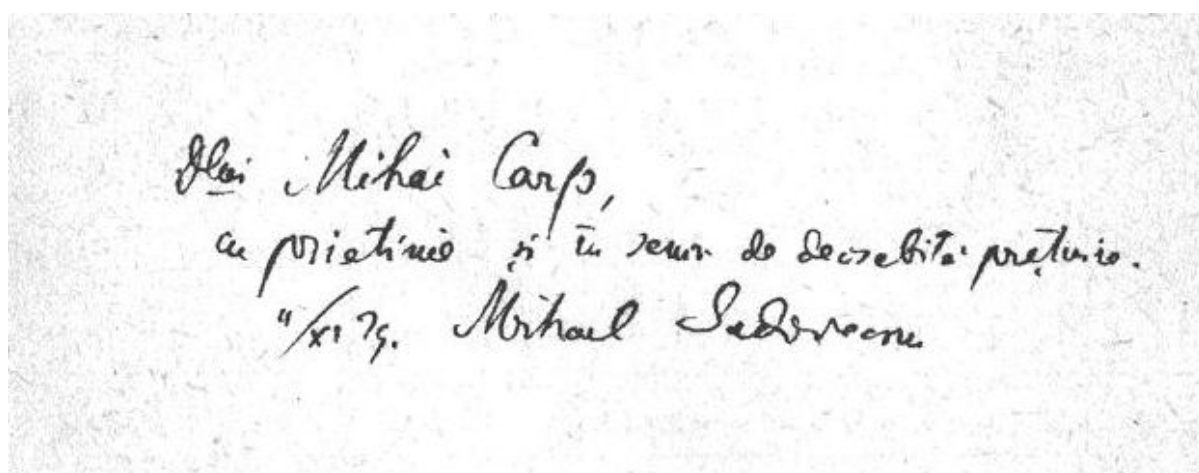 Dlui Mihai Carp,
cu prietinie și în semn de deosebită prețuire.
Mihail Sadoveanu